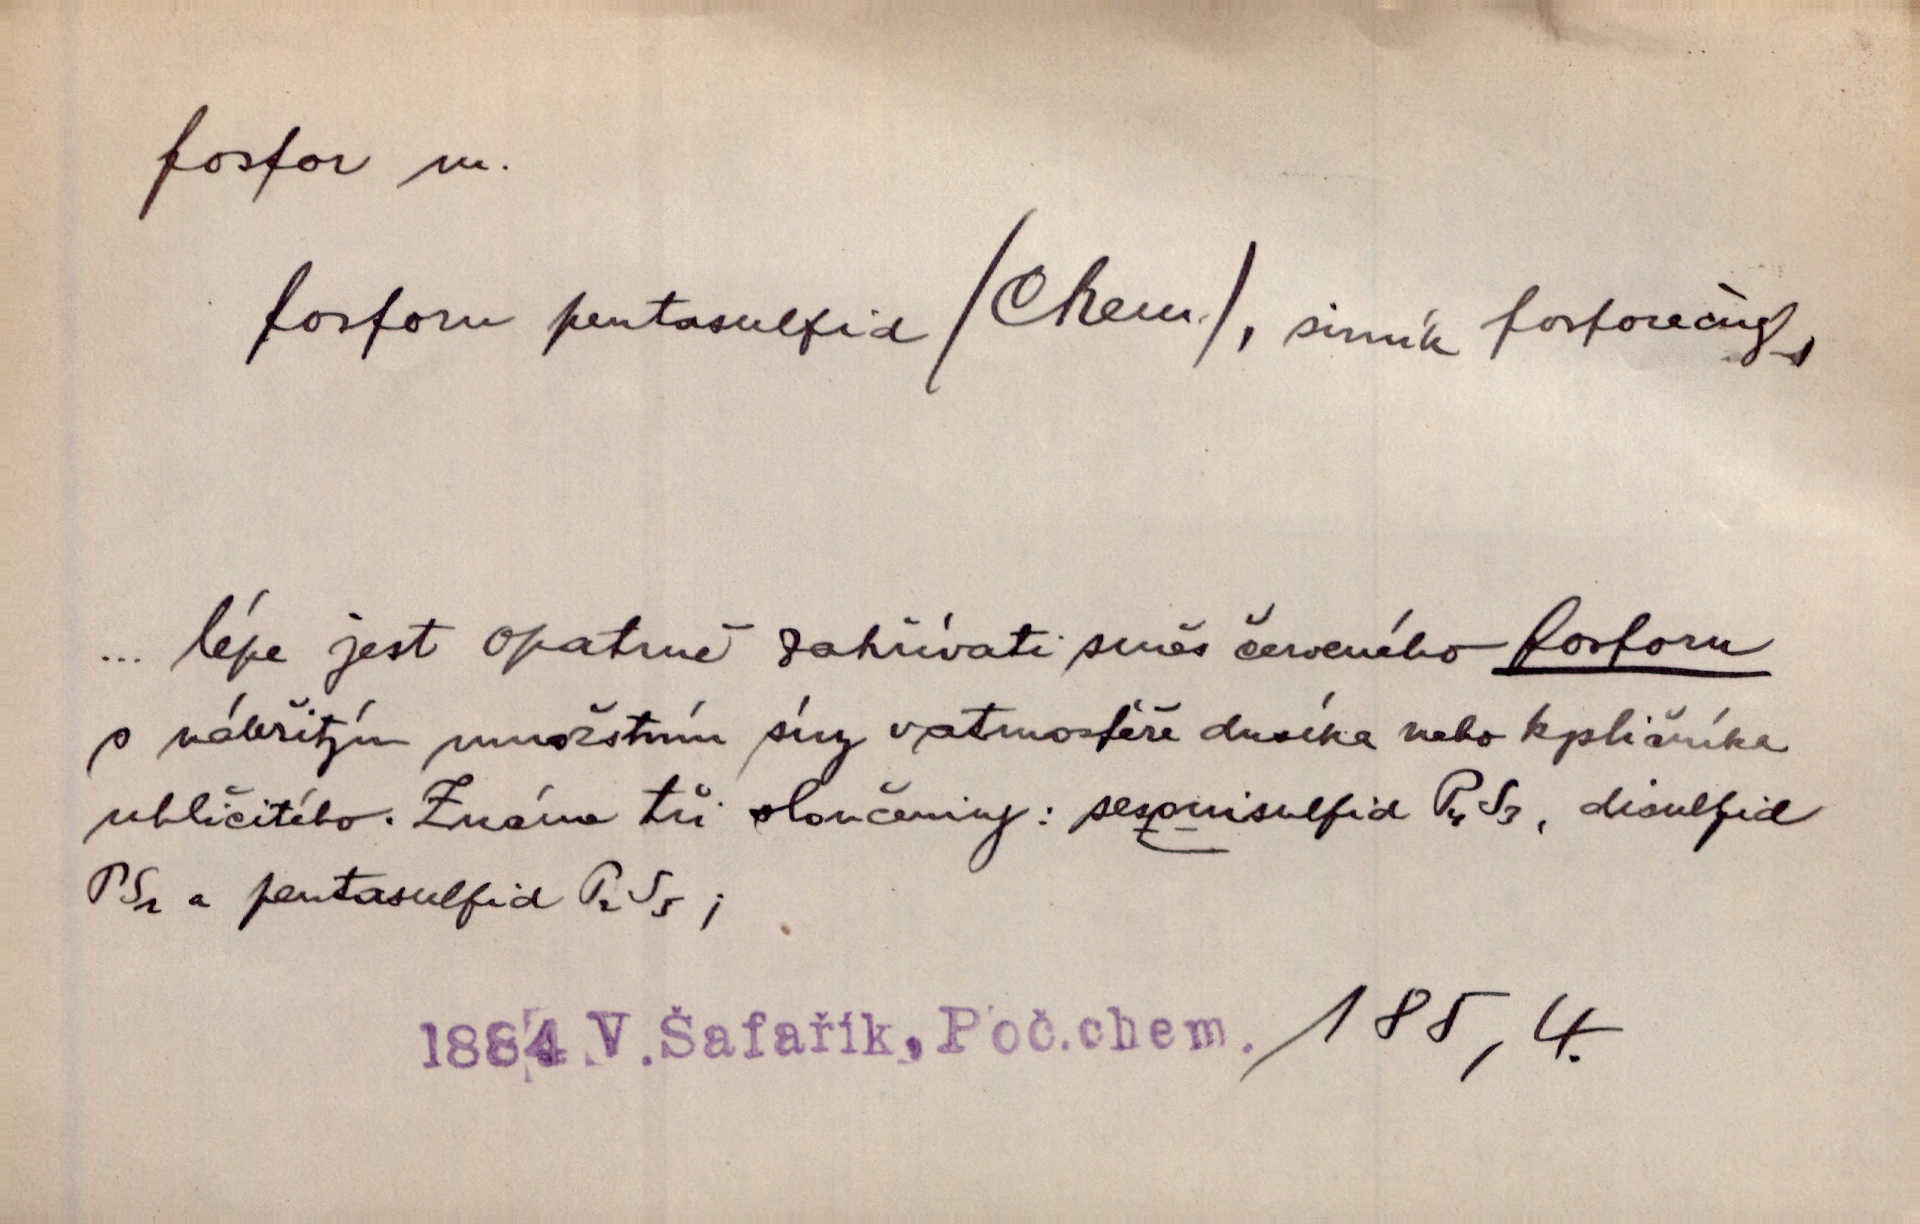 fosfor m.
fosforu pentasulfid (Chem.), sirník fosforečný,
... lépe jest opatrně zahřívati směs červeného fosforu
s náležitým množstvím síry v atmosféře dusíka nebo kysličníka
uhličitého. Známe tři sloučeniny: sesquisulfid P₄S₃, disulfid
PS₂ a pentasulfid P₂S₅;
1884 V. Šafařík, Poč.chem. 185, 4.